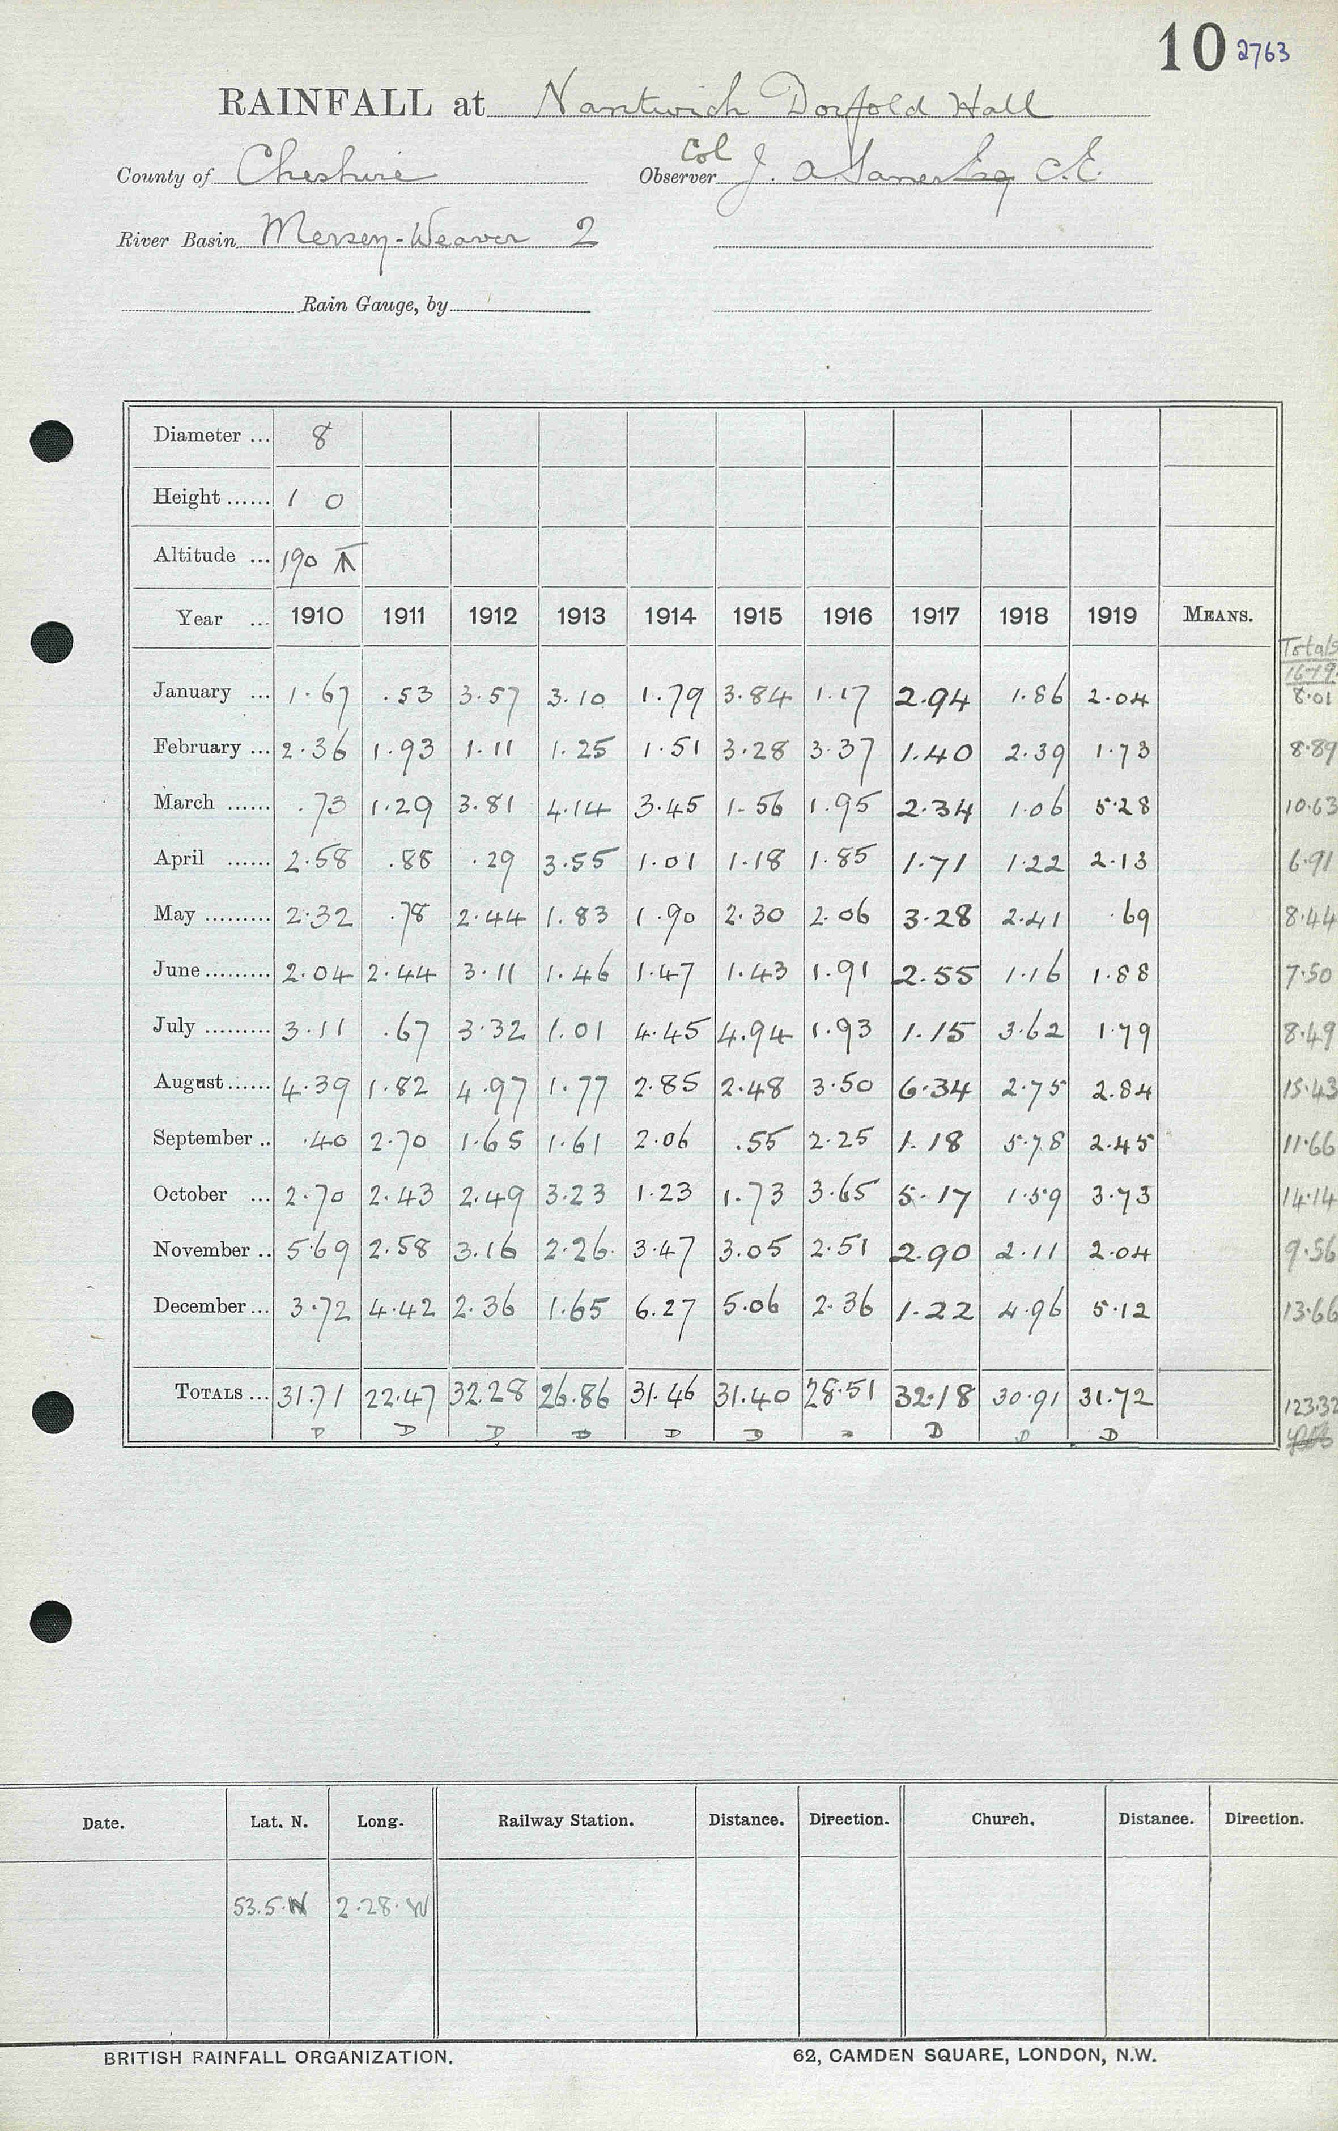 10 2763
RAINFALL at Nantwich Dorfold Hall
County of Cheshire Observer Col J. A. Saner Esq C.E.
River Basin Mersey-Weaver 2
Rain Gauge, by
Diameter ... 8
Height ...... 1 0
Altitude ... 190
Year ... 1910 1911 1912 1913 1914 1915 1916 1917 1918 1919 MEANS.
Totals
16-19
January ... 1.67 .53 3.57 3.10 1.79 3.84 1.17 2.94 1.86 2.04 8.01
February ... 2.36 1.93 1.11 1.25 1.51 3.28 3.37 1.40 2.39 1.73 8.89
March ...... .73 1.29 3.81 4.14 3.45 1.56 1.95 2.34 1.06 5.28 10.63
April ...... 2.58 .88 .29 3.55 1.01 1.18 1.85 1.71 1.22 2.13 6.91
May ......... 2.32 .78 2.44 1.83 1.90 2.30 2.06 3.28 2.41 .69 8.44
June ......... 2.04 2.44 3.11 1.46 1.47 1.43 1.91 2.55 1.16 1.88 7.50
July ......... 3.11 .67 3.32 1.01 4.45 4.94 1.93 1.15 3.62 1.79 8.49
August ...... 4.39 1.82 4.97 1.77 2.85 2.48 3.50 6.34 2.75 2.84 15.43
September .. .40 2.70 1.65 1.61 2.06 .55 2.25 1.18 5.78 2.45 11.66
October ... 2.70 2.43 2.49 3.23 1.23 1.73 3.65 5.17 1.59 3.73 14.14
November .. 5.69 2.58 3.16 2.26 3.47 3.05 2.51 2.90 2.11 2.04 9.56
December ... 3.72 4.42 2.36 1.65 6.27 5.06 2.36 1.22 4.96 5.12 13.66
TOTALS ... 31.71 22.47 32.28 26.86 31.46 31.40 28.51 32.18 30.91 31.72 123.32
D D D D D D D D D
Date. Lat. N. Long. Railway Station. Distance. Direction. Church. Distance. Direction.
53.5.N 2.28.W
BRITISH RAINFALL ORGANIZATION. 62, CAMDEN SQUARE, LONDON, N.W.